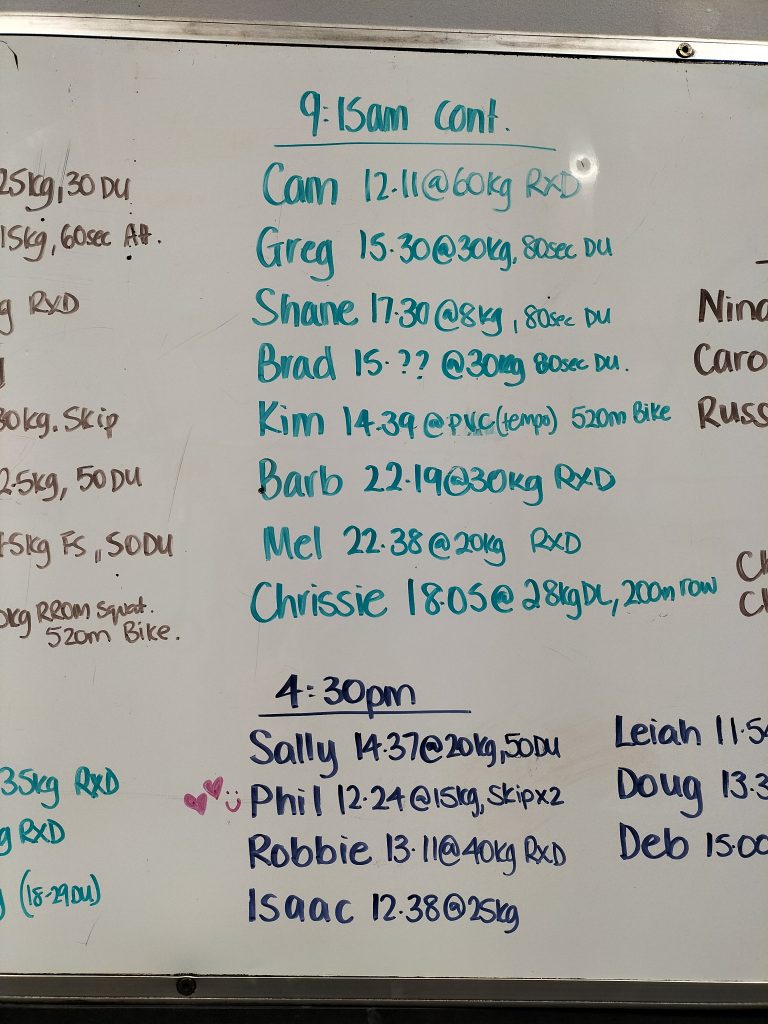 25kg, 30 DU
15kg, 60sec Att.
g RXD
30kg. Skip
2.5kg, 50 DU
45kg FS, 50DU
0kg RROM Squat.
520m Bike.
35kg RXD
g RXD
(18-29DU)
9:15am cont.
Cam 12.11@60kg RXD
Greg 15.30@30kg, 80sec DU
Shane 17.30@8kg, 80sec DU
Brad 15.??@30kg 80sec DU.
Kim 14.39@PVC(tempo) 520m Bike
Barb 22.19@30kg RXD
Mel 22.38@20kg RXD
Chrissie 18.05@28kgDL, 200m row
4:30pm
Sally 14.37@20kg, 50DU
Phil 12.24@15kg, Skipx2
Robbie 13.11@40kg RXD
Isaac 12.38@25kg
Nina
Caro
Russ
Ch
Ch
Leiah 11.54
Doug 13.3
Deb 15.00